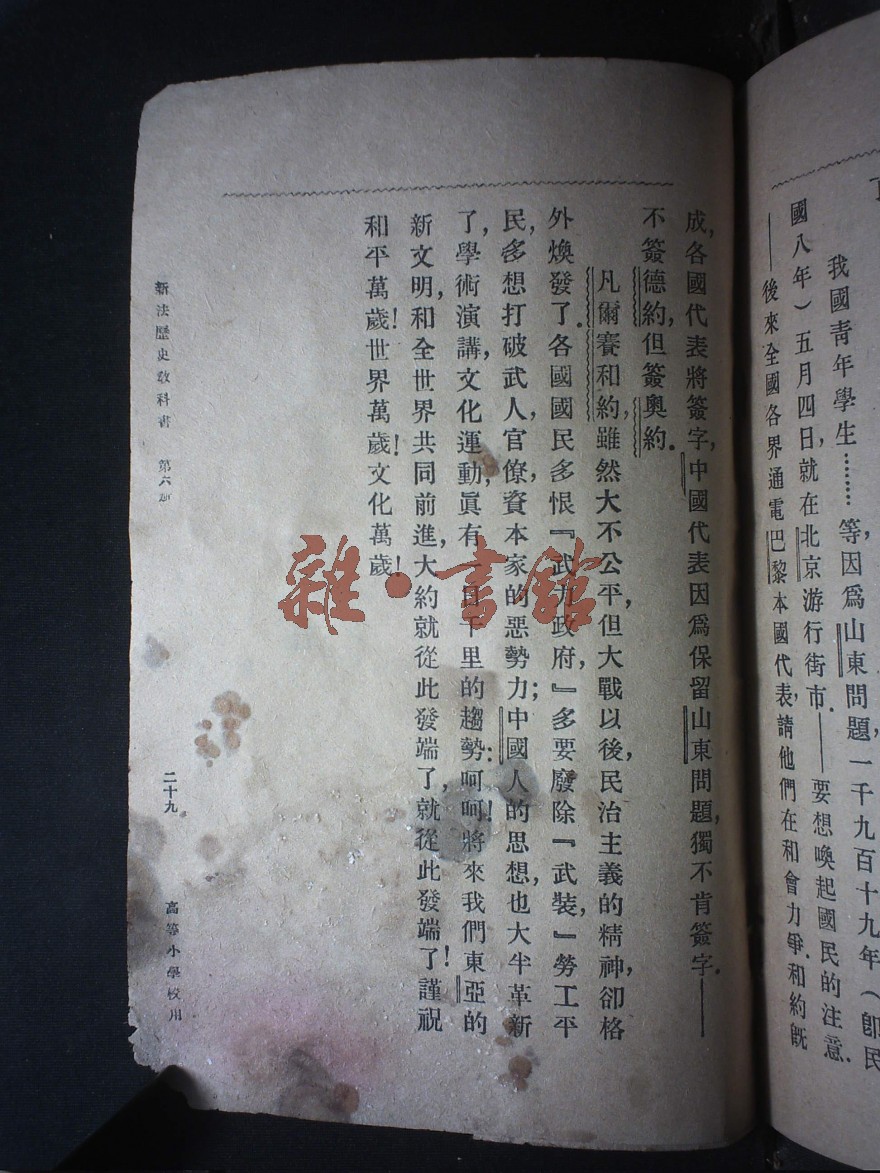 我國青年學生………等,因爲山東問題,一千九百十九年(卽民
國八年)五月四日,就在北京游行街市.——要想喚起國民的注意.
——後來全國各界通電巴黎本國代表,請他們在和會力爭.和約旣
成,各國代表將簽字,中國代表因爲保留山東問題,獨不肯簽字.——
不簽德約,但簽奧約.
凡爾賽和約,雖然大不公平,但大戰以後,民治主義的精神,卻格
外煥發了.各國國民多恨『武力政府,』多要廢除『武裝,』勞工平
民,多想打破武人,官僚,資本家的惡勢力;中國人的思想,也大半革新
了,學術演講,文化運動,眞有一日千里的趨勢:呵呵!將來我們東亞的
新文明,和全世界共同前進,大約就從此發端了,就從此發端了!謹祝
和平萬歲!世界萬歲!文化萬歲!
新法歷史敎科書 第六册
二十九
高等小學校用
雜·書館